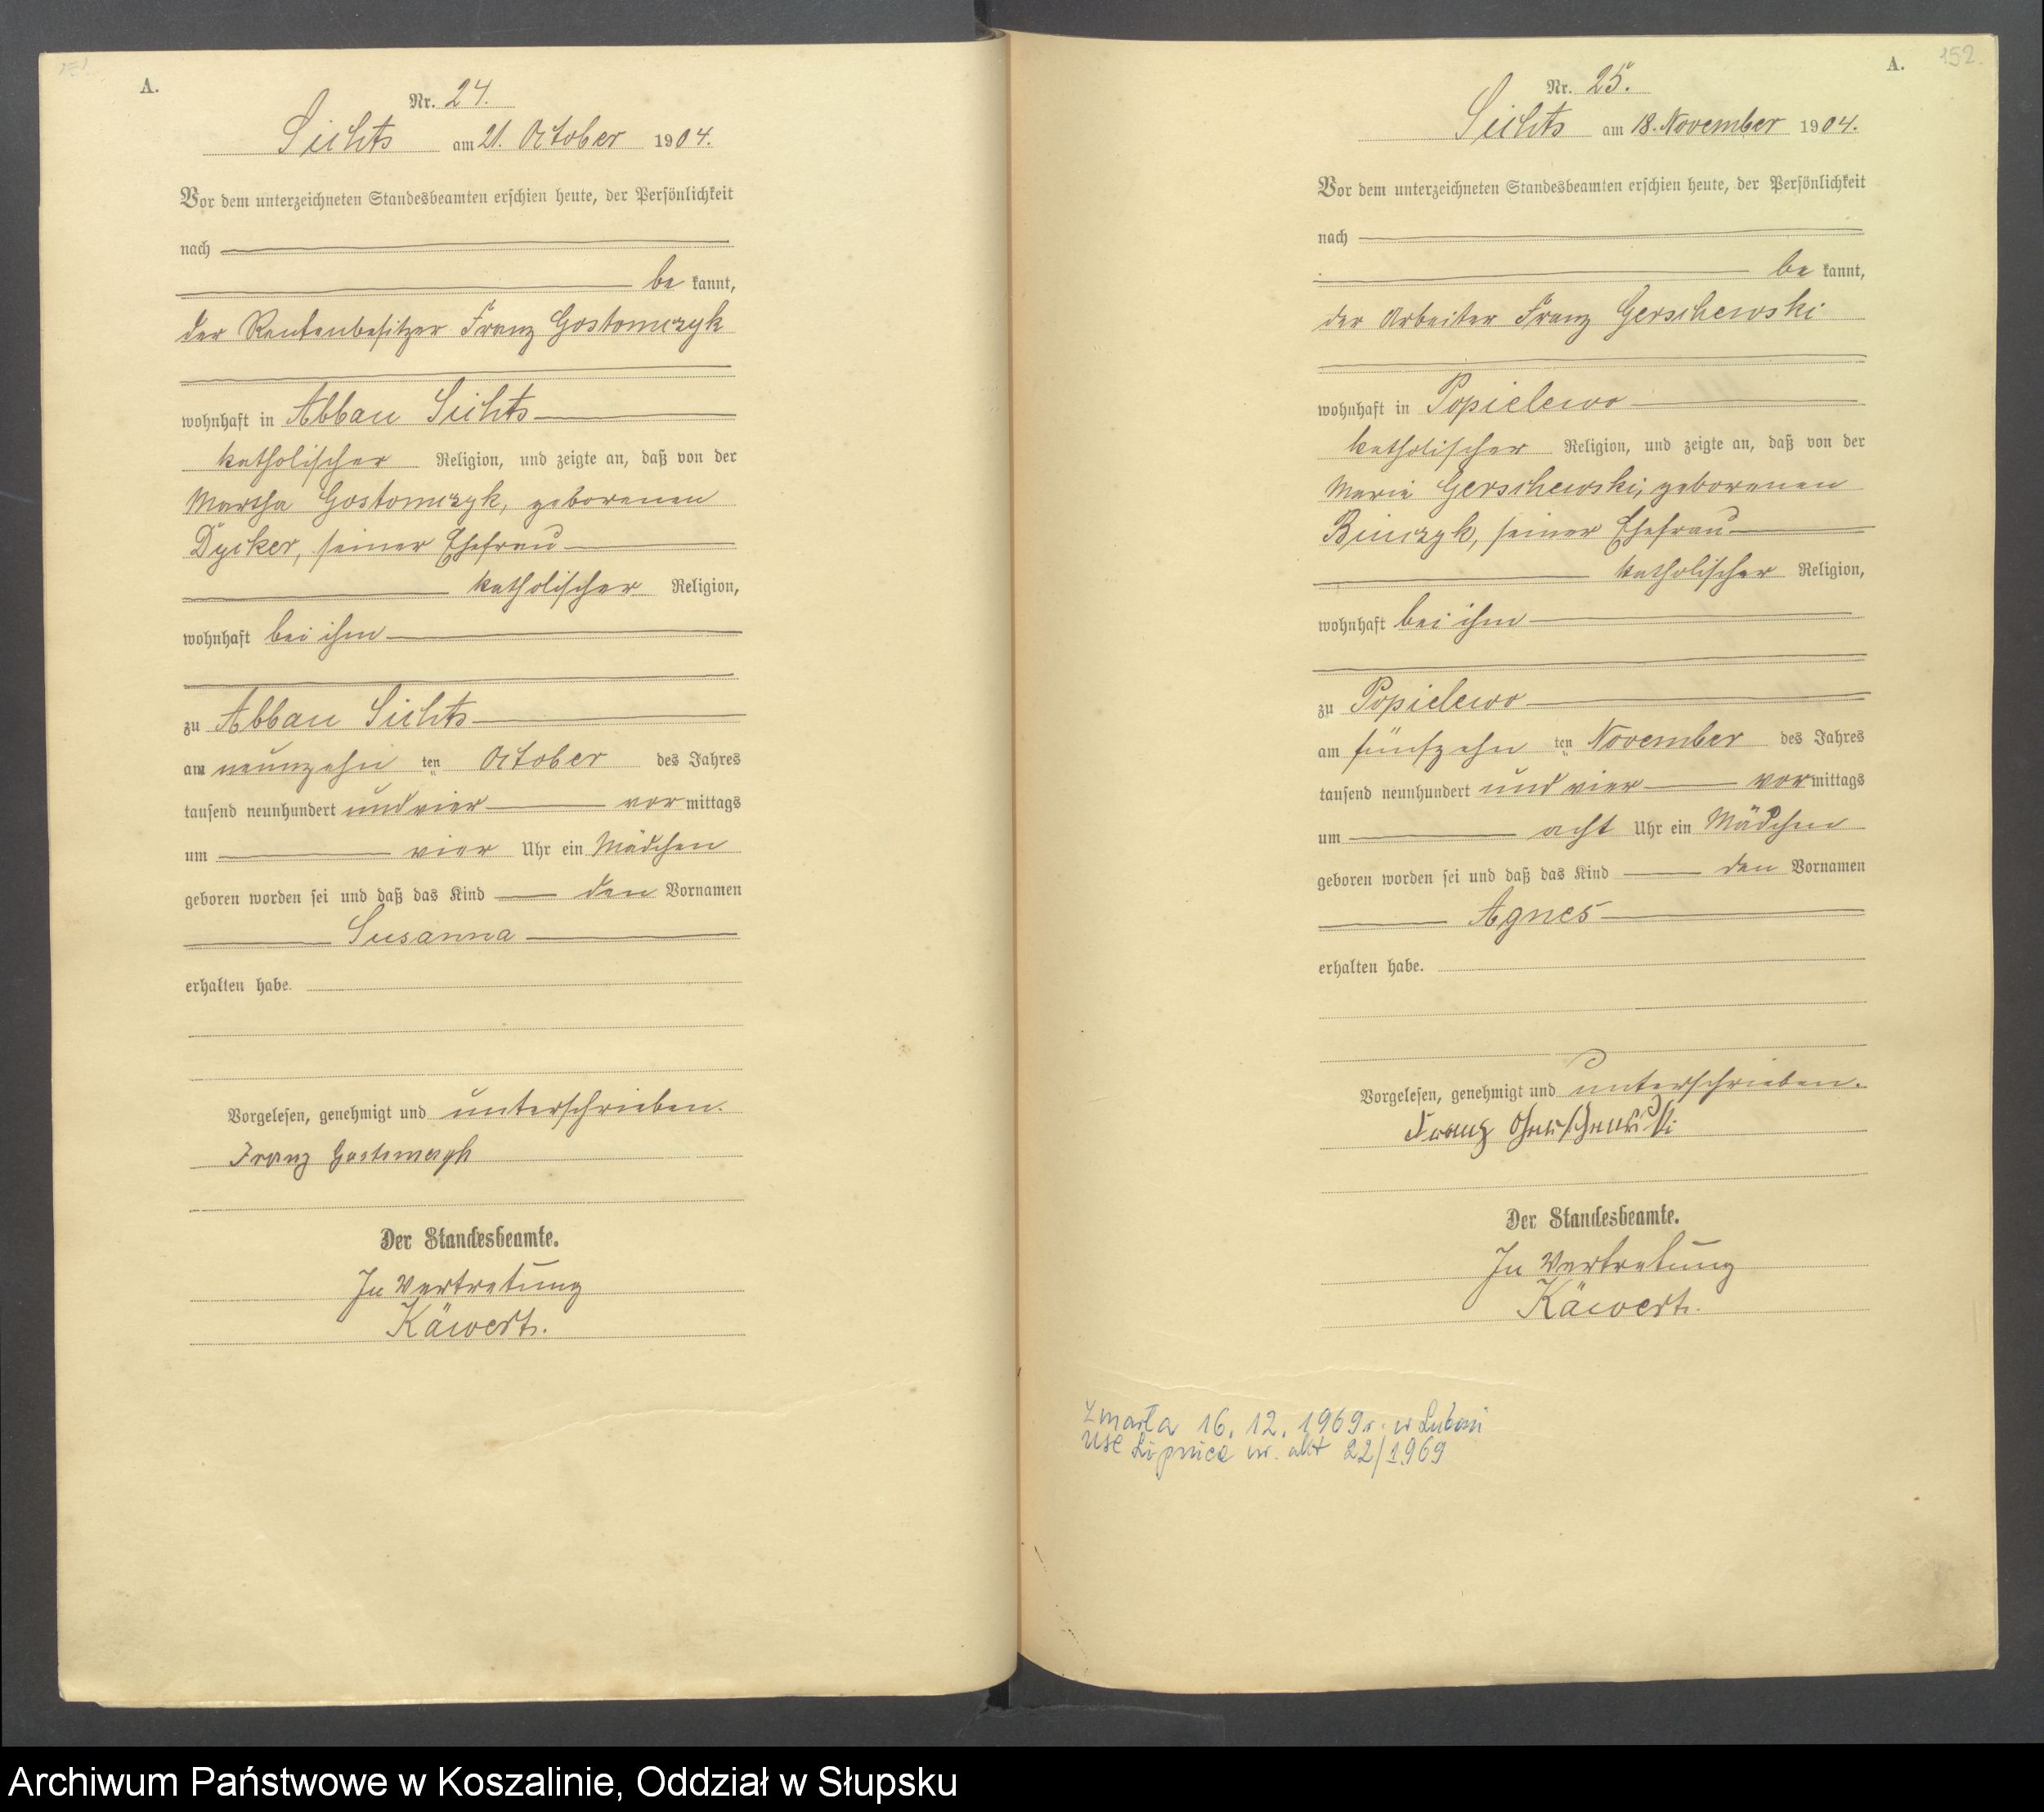 A.
Nr. 24.
Sichts am 21. October 1904.
Vor dem unterzeichneten Standesbeamten erschien heute, der Persönlichkeit
nach
be kannt,
der Rentenbesitzer Franz Gostomczyk
wohnhaft in Abbau Sichts
katholischer Religion, und zeigte an, daß von der
Martha Gostomczyk, geborenen
Dycker, seiner Ehefrau
katholischer Religion,
wohnhaft bei ihm
zu Abbau Sichts
am neunzehn ten October des Jahres
tausend neunhundert und vier vor mittags
um vier Uhr ein Mädchen
geboren worden sei und daß das Kind den Vornamen
Susanna
erhalten habe.
Vorgelesen, genehmigt und unterschrieben.
Franz
Der Standesbeamte.
In Vertretung
Käwert.
A. 152
Nr. 25.
Sichts am 18. November 1904.
Vor dem unterzeichneten Standesbeamten erschien heute, der Persönlichkeit
nach
be kannt,
der Arbeiter Franz Gerschewski
wohnhaft in Popielewo
katholischer Religion, und zeigte an, daß von der
Marie Gerschewski, geborenen
Binczyk, seiner Ehefrau
katholischer Religion,
wohnhaft bei ihm
zu Popielewo
am fünfzehn ten November des Jahres
tausend neunhundert und vier vor mittags
um acht Uhr ein Mädchen
geboren worden sei und daß das Kind den Vornamen
Agnes
erhalten habe.
Vorgelesen, genehmigt und unterschrieben.
Franz Gerschewski
Der Standesbeamte.
In Vertretung
Käwert.
Zmarła 16. 12. 1969 r. w
USC Lipnica nr. akt 22/1969
Archiwum Państwowe w Koszalinie, Oddział w Słupsku